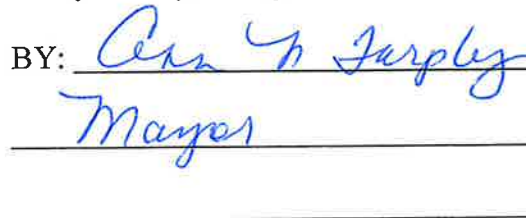 BY: Ann N Tarpley
Mayor